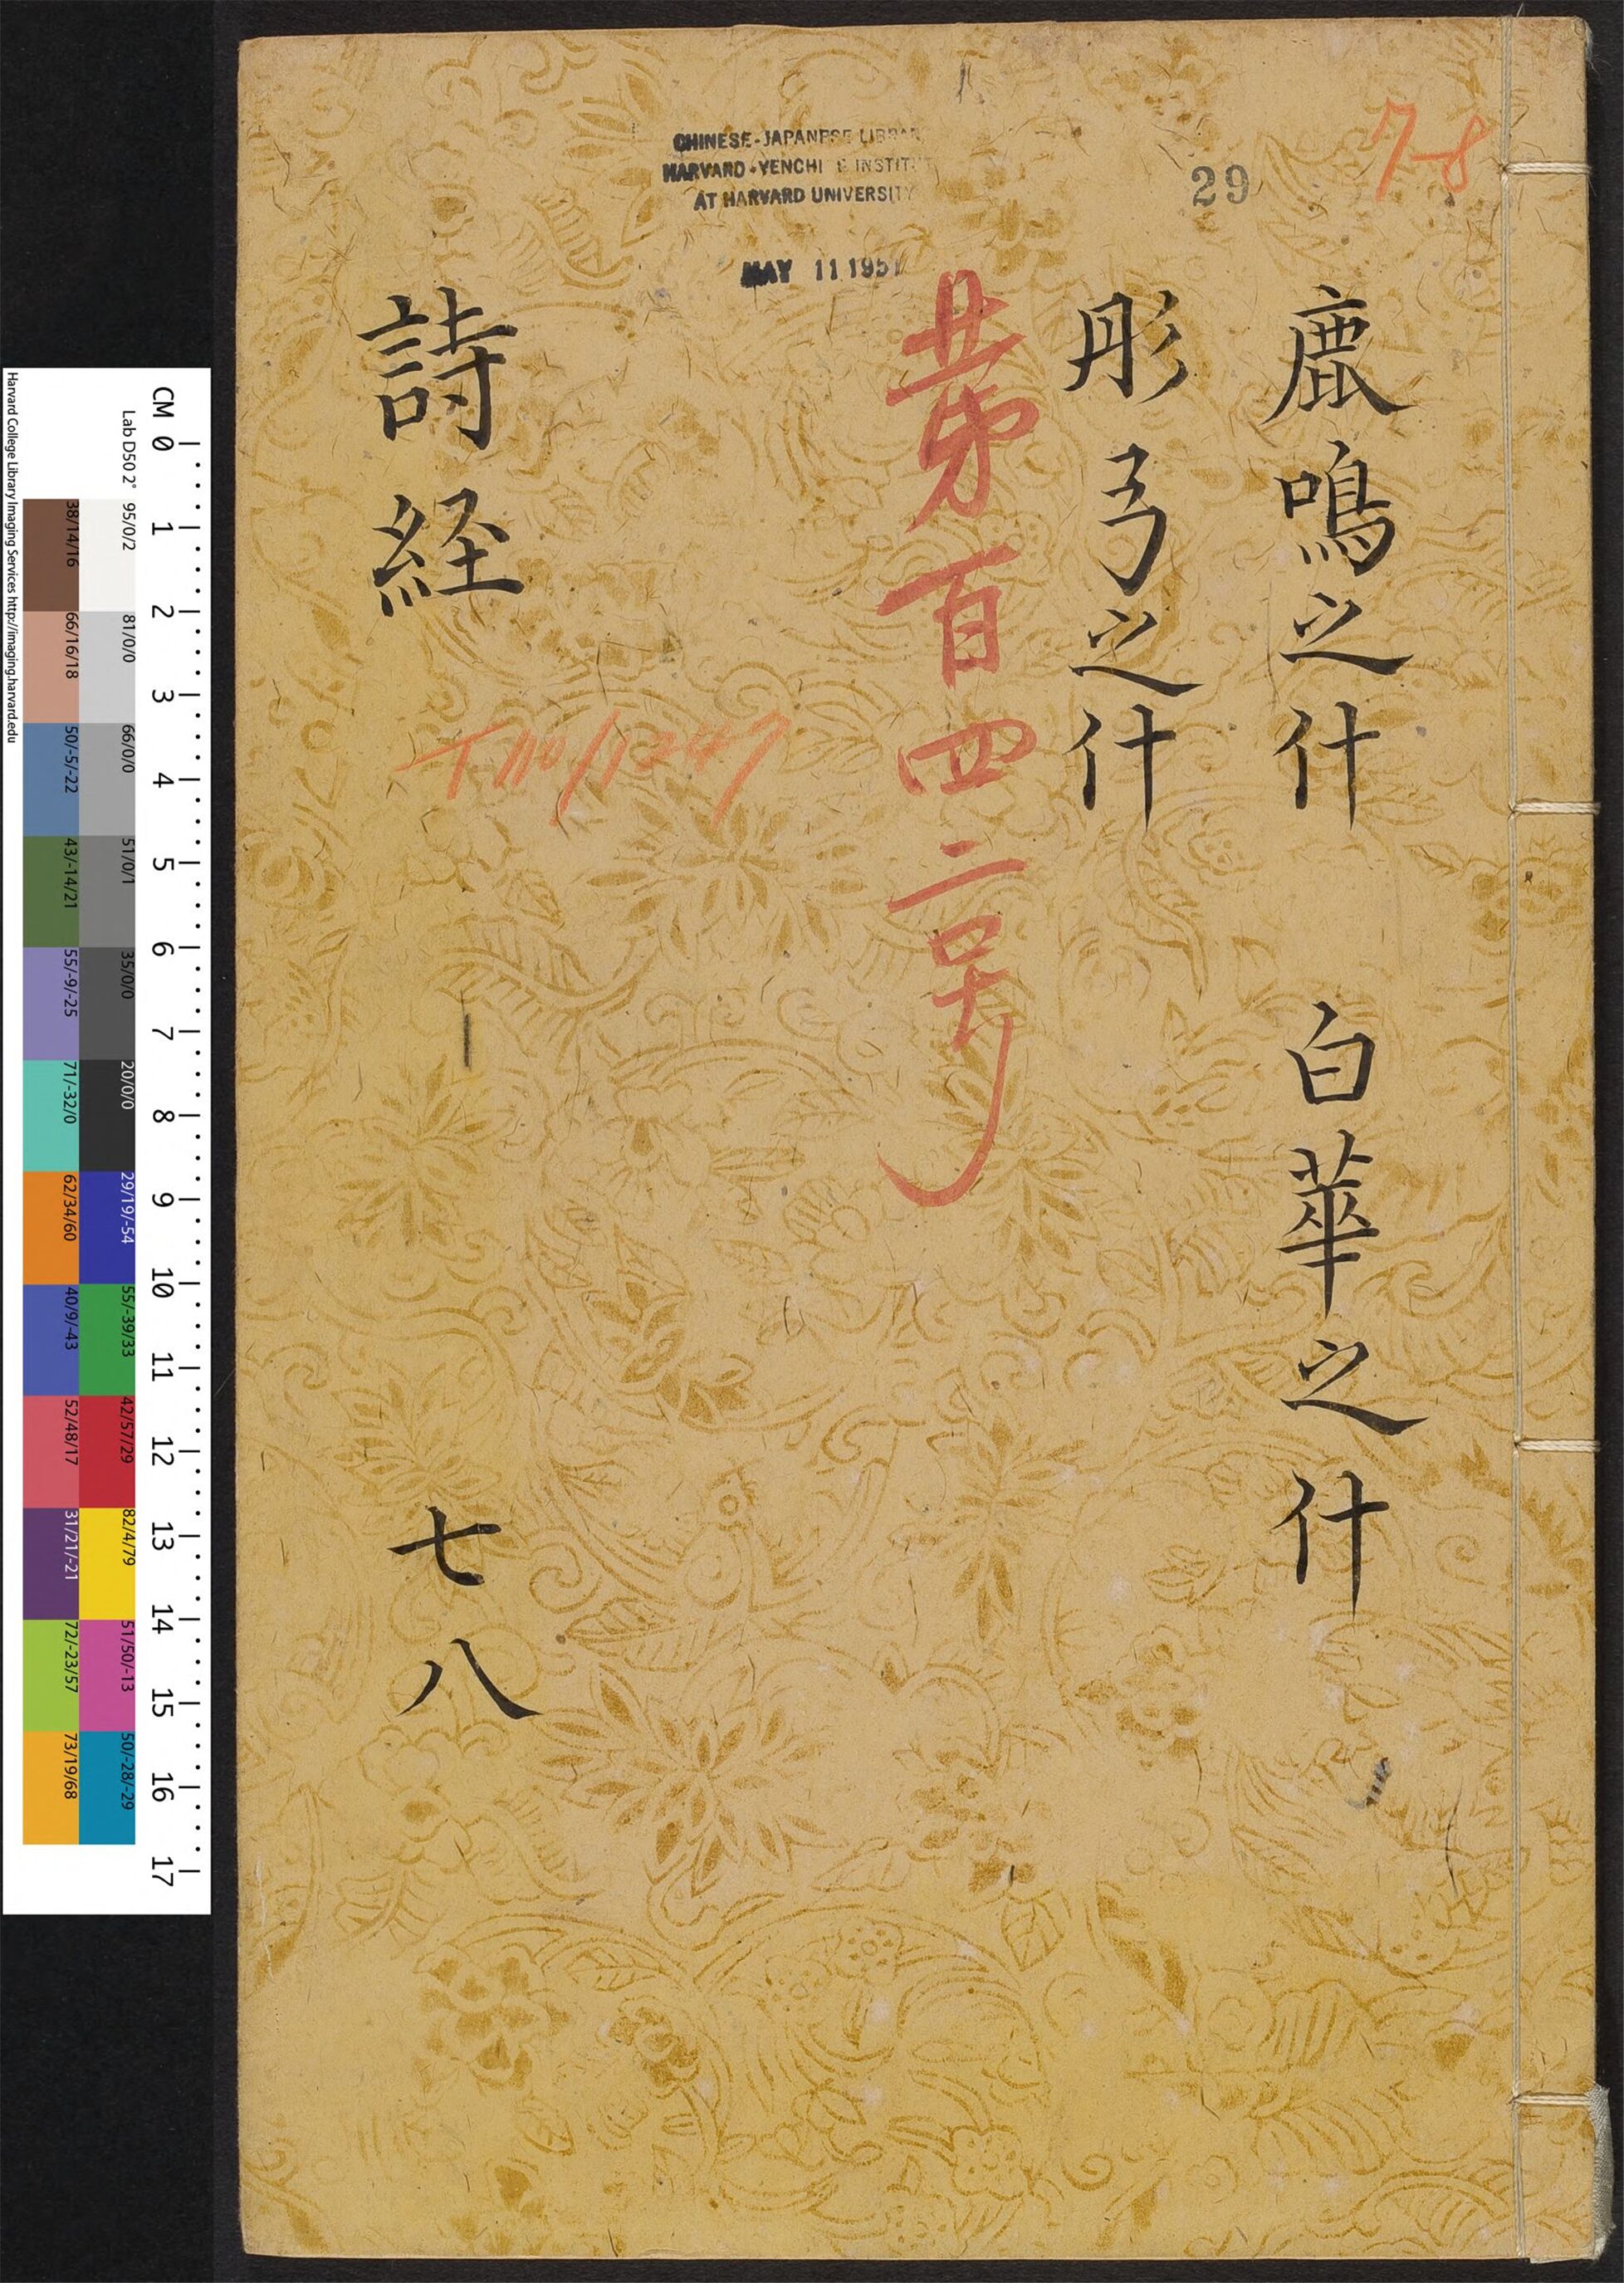 鹿鳴之什 白華之什
彤弓之什
第百四二号
詩経 七八
7-8
29
CHINESE-JAPANESE LIBRAR
HARVARD-YENCHI G INSTIT
AT HARVARD UNIVERSITY
MAY 11 1951
CM 0 1 2 3 4 5 6 7 8 9 10 11 12 13 14 15 16 17
Lab D50 2° 95/0/2 81/0/0 66/0/0 51/0/1 35/0/0 20/0/0 29/19/-54 55/-39/33 42/57/29 82/4/79 51/50/-13 50/-28/-29
38/14/16 66/16/18 50/-5/-22 43/-14/21 55/-9/-25 71/-32/0 62/34/60 40/9/-43 52/48/17 31/21/-21 72/-23/57 73/19/68
Harvard College Library Imaging Services http://imaging.harvard.edu